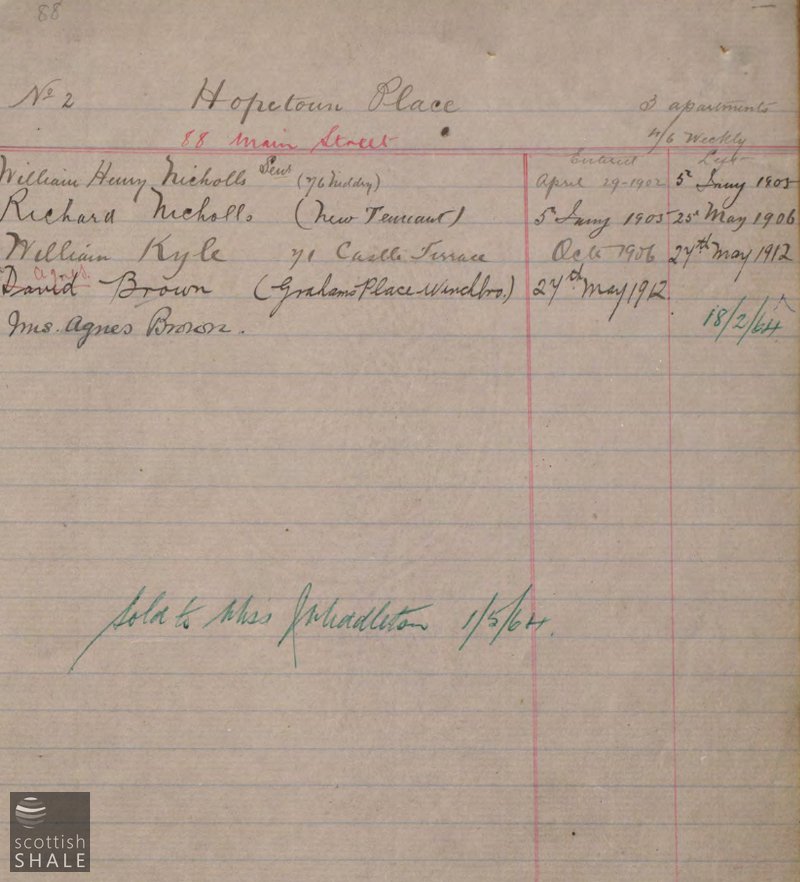 88
No 2 Hopetoun Place 3 apartments
88 Main Street 4/6 Weekly
Entered Left
William Henry Nicholls Senr (76 Niddry) April 29-1902 5th Jany 1905
Richard Nicholls (New Tennant) 5th Jany 1905 25th May 1906
William Kyle 71 Castle Terrace Octr 1906 27th May 1912
Agnes.
David Brown (Grahams Place-Winchbro.) 27th May 1912
Mrs. Agnes Brown. 18/2/64
Sold to Miss J Middleton 1/5/64.
scottish
SHALE